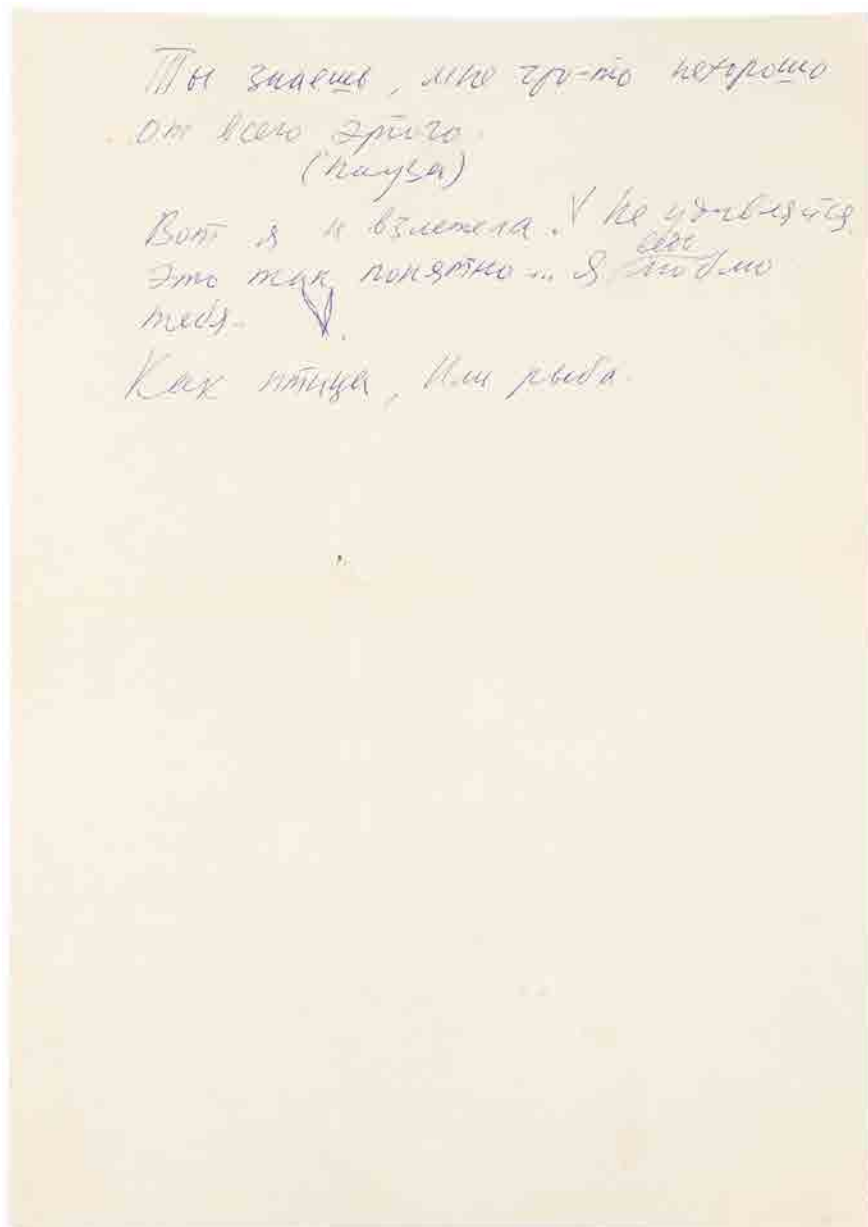 Ты знаешь, мне что-то нехорошо
от всего этого.
(пауза)
Вот я и взлетела. V Не удивляйся
Это так понятно... Я люблю
тебя. V.
Как птица, Или рыба.